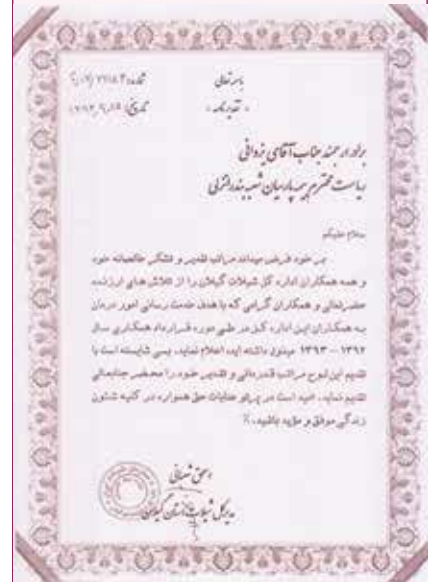 باسمه تعالی
« تقدیرنامه »
شماره:
تاریخ:
برادر ارجمند جناب آقای یزدانی
ریاست محترم بیمه پارسیان شعبه بندرانزلی
سلام علیکم
بر خود فرض میداند مراتب تقدیر و تشکر خالصانه خود
و همه همکاران اداره کل شیلات گیلان را از تلاش های ارزنده
حضرتعالی و همکاران گرامی که با هدف خدمت رسانی امور درمان
به همکاران این اداره کل در طی دوره قرارداد همکاری سال
۱۳۹۲ - ۱۳۹۳ مبذول داشته اید، اعلام نماید. بسی شایسته است با
تقدیم این لوح مراتب قدردانی و تقدیر خود را محضر جنابعالی
تقدیم نماید. امید است در پرتو عنایات حق همواره در کلیه شئون
زندگی موفق و مؤید باشید. ٪
مدیرکل شیلات استان گیلان